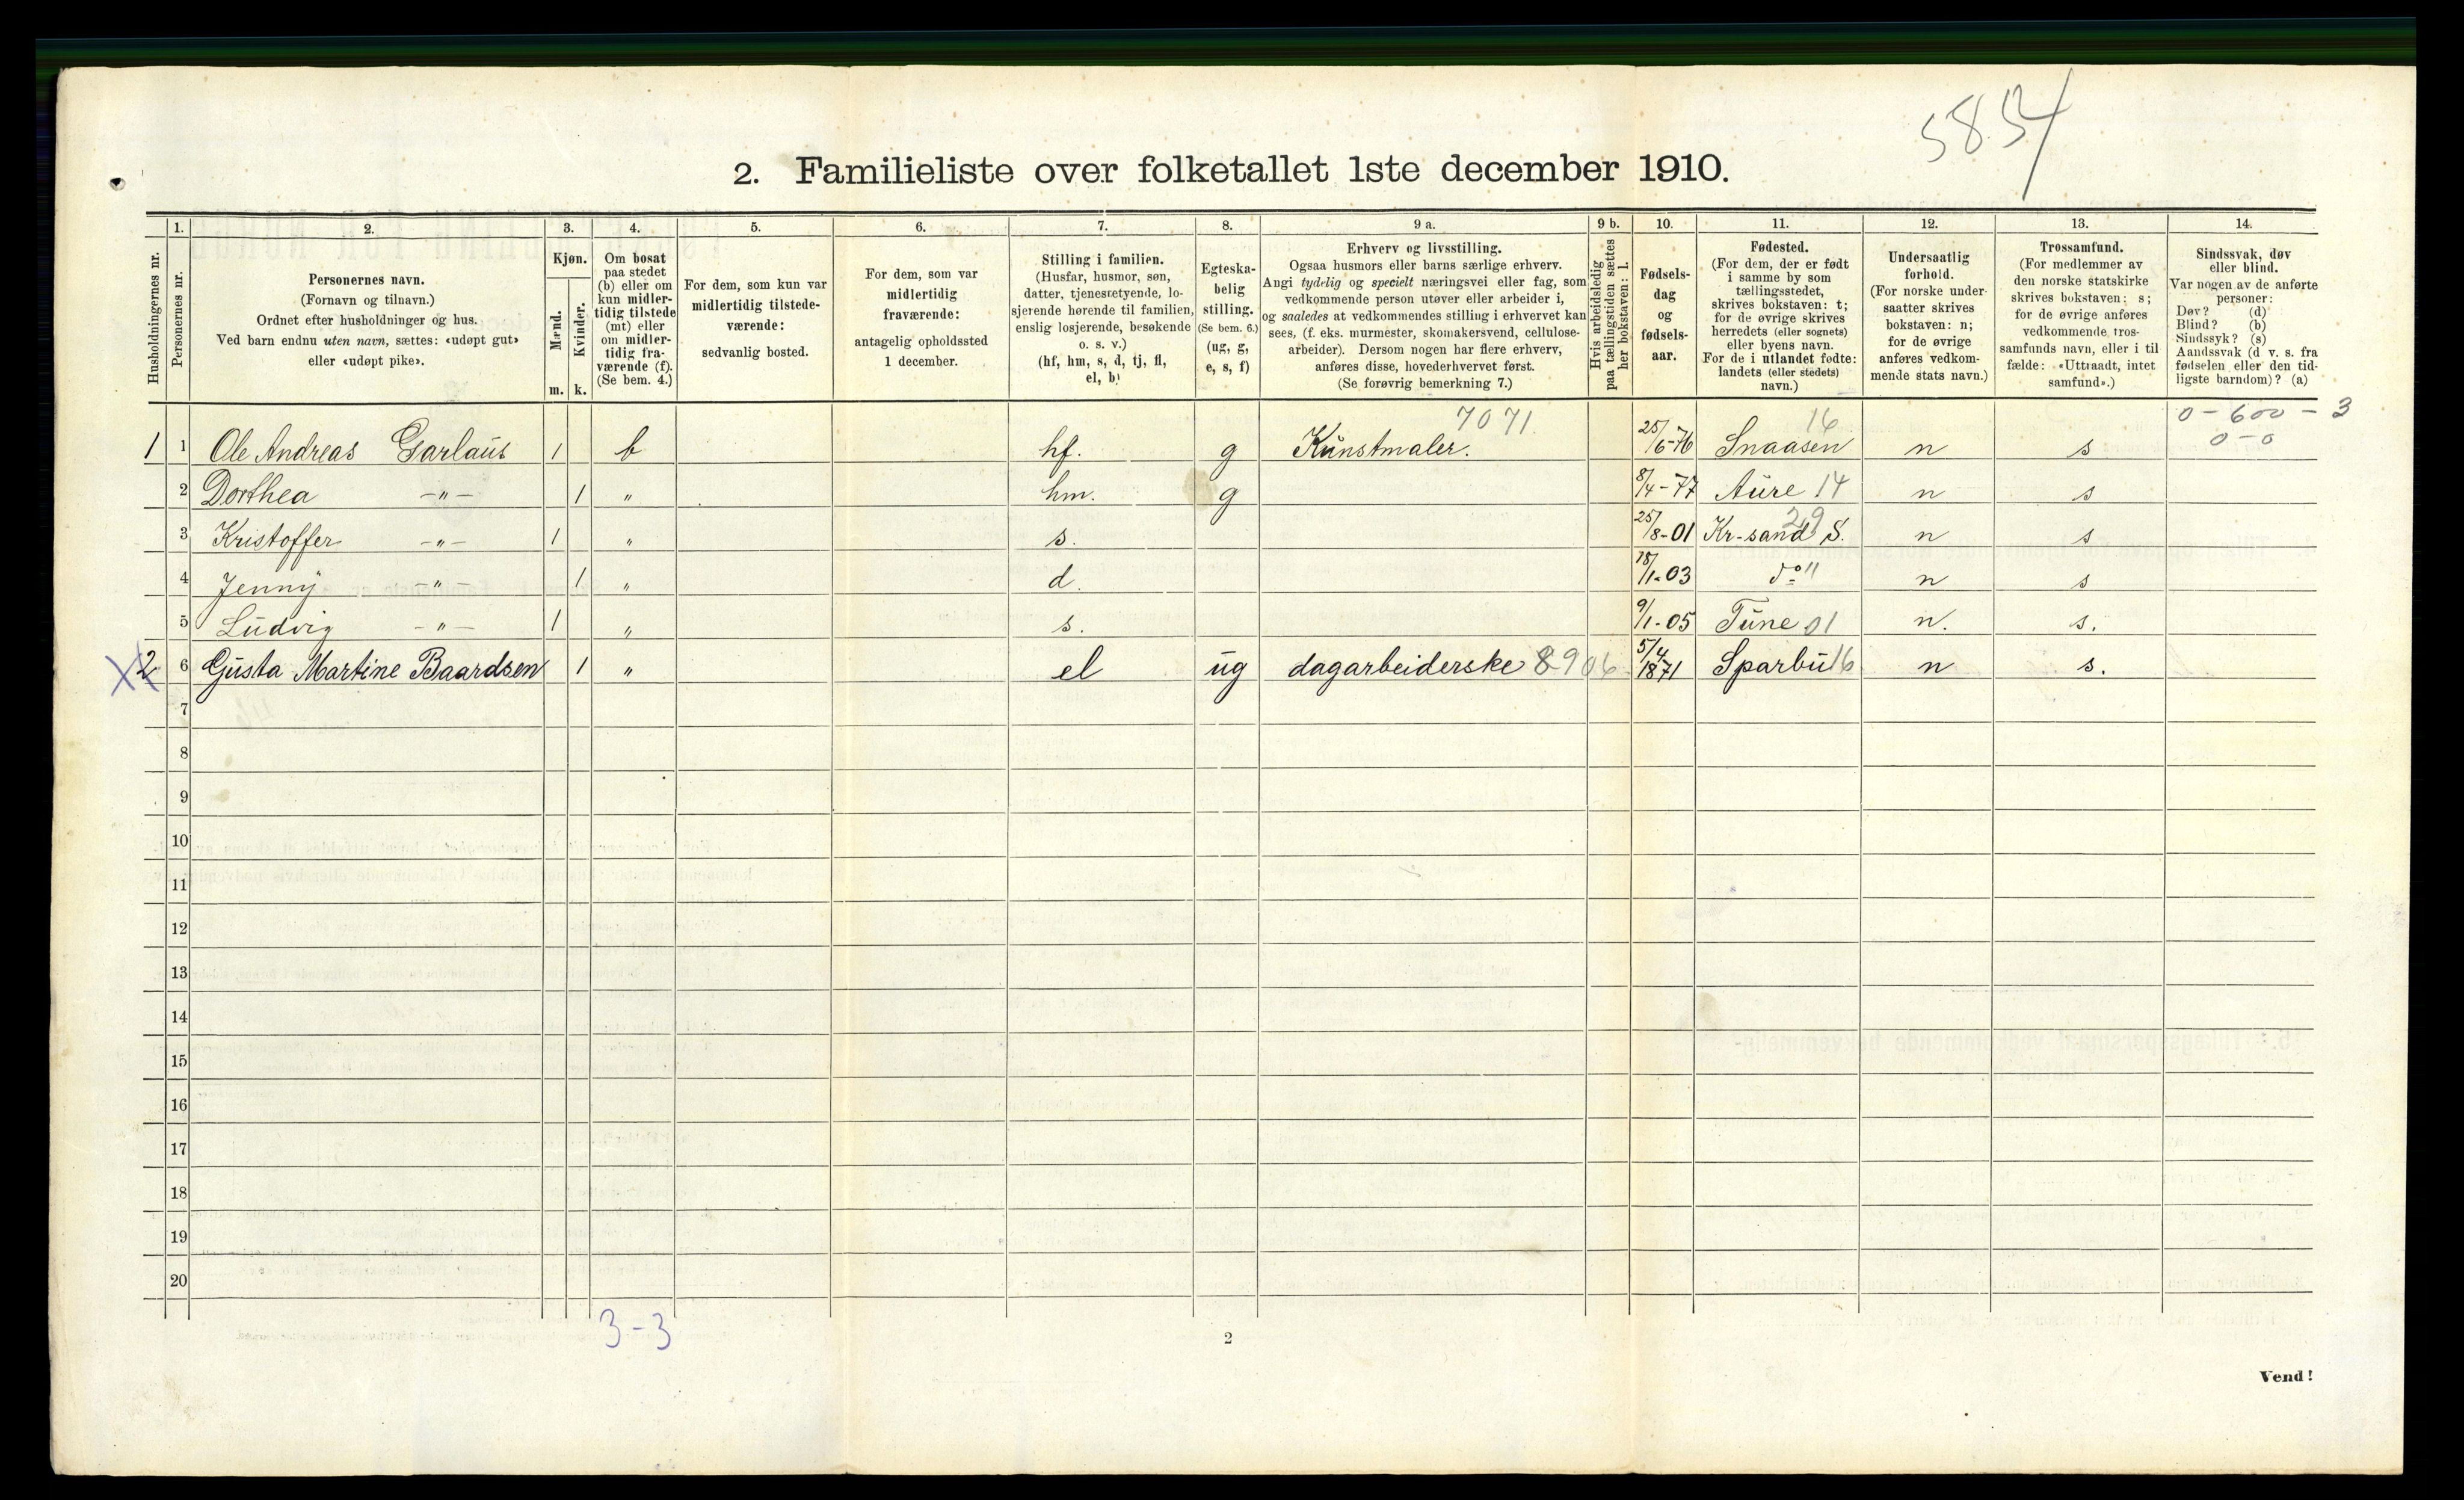 5834
2. Familieliste over folketallet 1ste december 1910.
1. 2. 3. 4. 5. 6. 7. 8. 9 a. 9 b. 10. 11. 12. 13. 14.
Husholdningernes nr.
Personernes nr.
Personernes navn.
(Fornavn og tilnavn.)
Ordnet efter husholdninger og hus.
Ved barn endnu uten navn, sættes: «udøpt gut»
eller «udøpt pike».
Kjøn.
Mænd.
Kvinder.
m. k.
Om bosat
paa stedet
(b) eller om
kun midler-
tidig tilstede
(mt) eller
om midler-
tidig fra-
værende (f).
(Se bem. 4.)
For dem, som kun var
midlertidig tilstede-
værende:
sedvanlig bosted.
For dem, som var
midlertidig
fraværende:
antagelig opholdssted
1 december.
Stilling i familien.
(Husfar, husmor, søn,
datter, tjenestetyende, lo-
sjerende hørende til familien,
enslig losjerende, besøkende
o. s. v.)
(hf, hm, s, d, tj, fl,
el, b)
Egteska-
belig
stilling.
(Se bem. 6.)
(ug, g,
e, s, f)
Erhverv og livsstilling.
Ogsaa husmors eller barns særlige erhverv.
Angi tydelig og specielt næringsvei eller fag, som
vedkommende person utøver eller arbeider i,
og saaledes at vedkommendes stilling i erhvervet kan
sees, (f. eks. murmester, skomakersvend, cellulose-
arbeider). Dersom nogen har flere erhverv,
anføres disse, hovederhvervet først.
(Se forøvrig bemerkning 7.)
Hvis arbeidsledig
paa tællingstiden sættes
her bokstaven: l.
Fødsels-
dag
og
fødsels-
aar.
Fødested.
(For dem, der er født
i samme by som
tællingsstedet,
skrives bokstaven: t;
for de øvrige skrives
herredets (eller sognets)
eller byens navn.
For de i utlandet fødte:
landets (eller stedets)
navn.)
Undersaatlig
forhold.
(For norske under-
saatter skrives
bokstaven: n;
for de øvrige
anføres vedkom-
mende stats navn.)
Trossamfund.
(For medlemmer av
den norske statskirke
skrives bokstaven: s;
for de øvrige anføres
vedkommende tros-
samfunds navn, eller i til-
fælde: «Uttraadt, intet
samfund».)
Sindssvak, døv
eller blind.
Var nogen av de anførte
personer:
Døv? (d)
Blind? (b)
Sindssyk? (s)
Aandssvak (d v. s. fra
fødselen eller den tid-
ligste barndom)? (a)
7071 16 0-600-3
1 1 Ole Andreas Garlaus 1 b hf. g Kunstmaler. 25/6-76 Snaasen n s 0-0
2 Dorthea -"- 1 " hm. g 8/4-77 Aure 14 n s
3 Kristoffer -"- 1 " s. 25/8-01 Kr-sand S. 29 n s
4 Jenny -"- 1 " d. 18/1-03 do " n s
5 Ludvig -"- 1 " s. 9/1-05 Tune 01 n. s.
2 6 Gusta Martine Baardsen 1 " el ug dagarbeiderske 8906 5/4 1871 Sparbu 16 n s.
7
8
9
10
11
12
13
14
15
16
17
18
19
20
3-3
2
Vend!